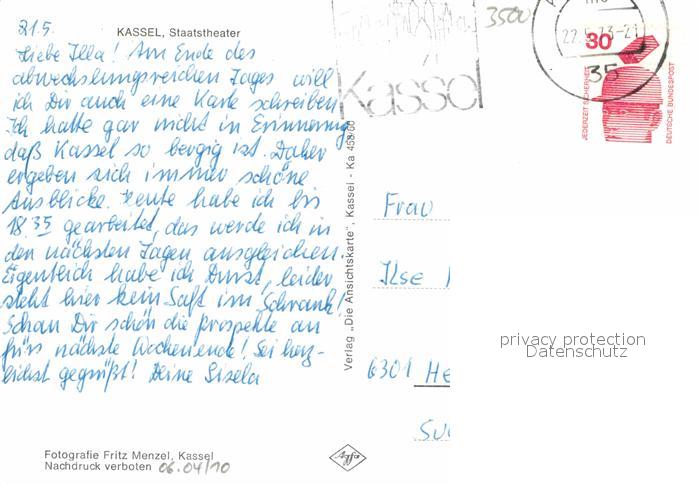 21.5.
KASSEL, Staatstheater
Liebe Illa! Am Ende des
abwechslungsreichen Tages will
ich Dir auch eine Karte schreiben.
Ich hatte gar nicht in Erinnerung
daß Kassel so bergig ist. Daher
ergeben sich immer schöne
Ausblicke. Heute habe ich bis
18.35 gearbeitet, das werde ich in
den nächsten Tagen ausgleichen.
Eigentlich habe ich Durst, leider
steht hier kein Saft im Schrank!
Schau Dir schön die Prospekte an
fürs nächste Wochenende! Sei herz-
lichst gegrüßt! Deine Gisela
Fotografie Fritz Menzel, Kassel
Nachdruck verboten 06.04/10
Verlag „Die Ansichtskarte", Kassel - Ka 458/60
Agfa
3500
Kassel
22.5.73-21
35
30
JEDERZEIT SICHERHEIT
DEUTSCHE BUNDESPOST
Frau
Ilse
6301 He
privacy protection
Datenschutz